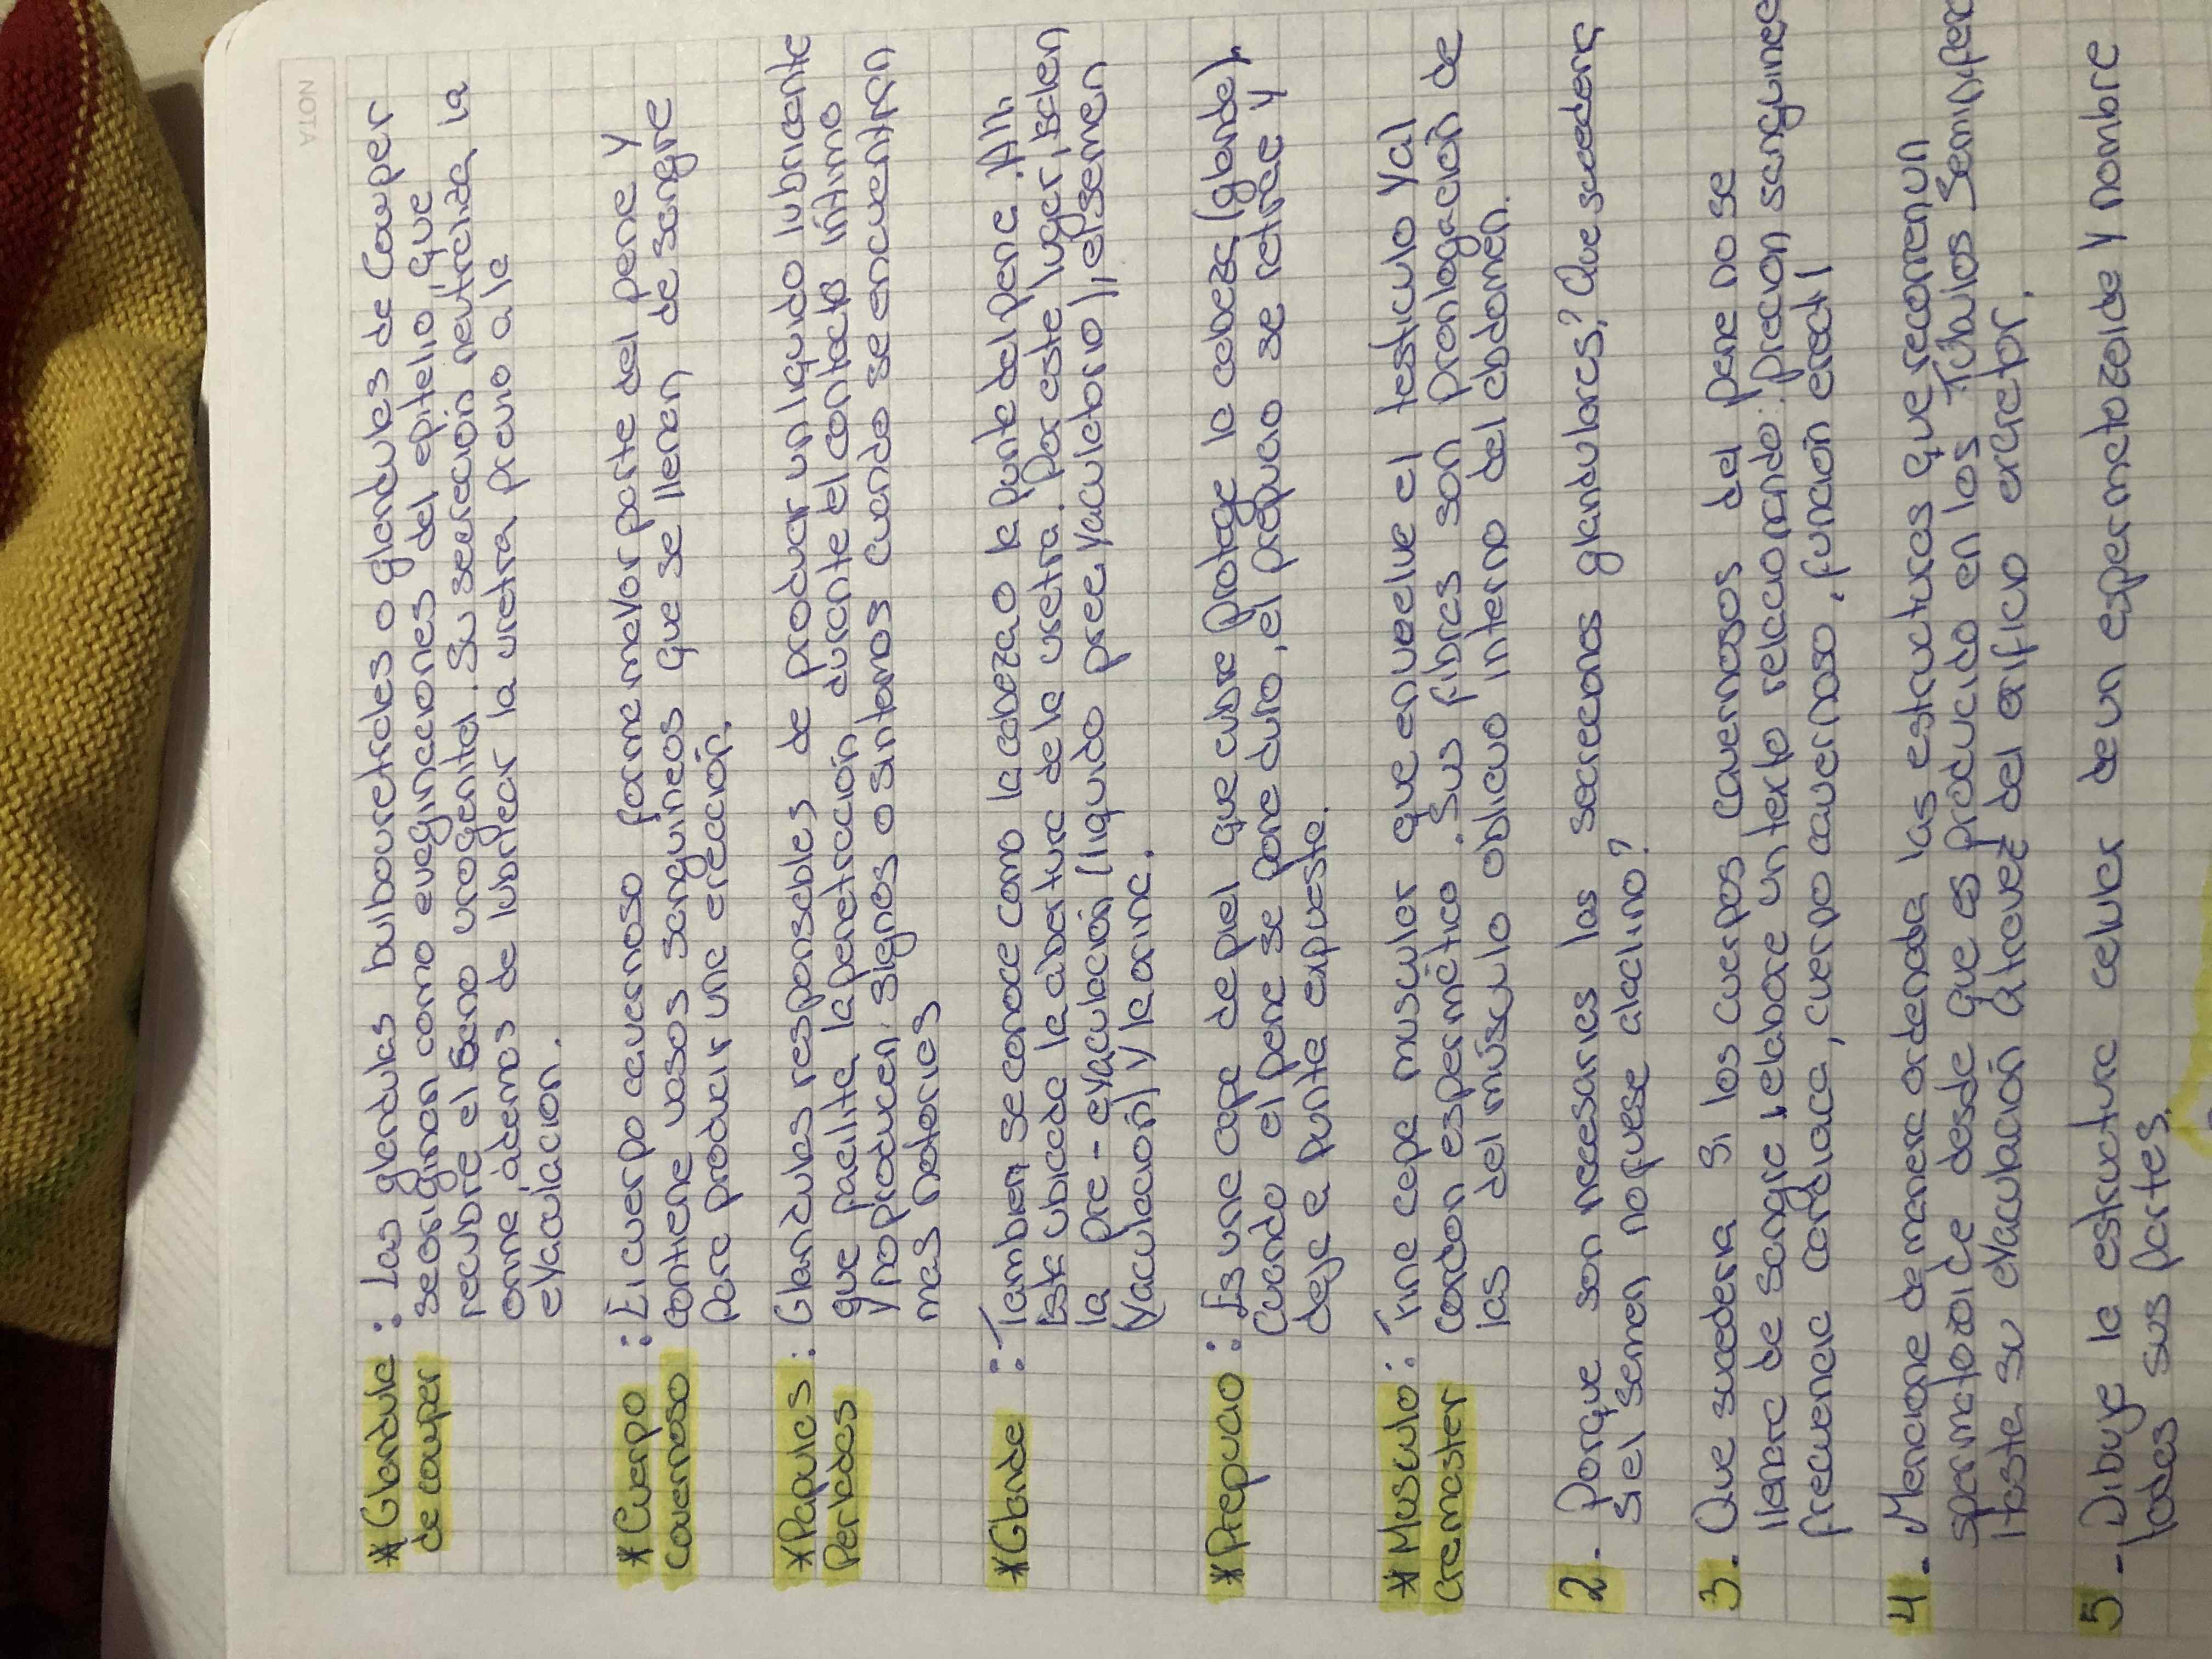 NOTA
*Glandula : Las glandulas bulbouretrales o glandulas de Cowper
de cowper se originan como evaginaciones del epitelio, que
recubre el seno urogenital. Su secreción neutraliza la
orina, ademas de lubricar la uretra, previo a la
eyaculacion.
*Cuerpo : El cuerpo cavernoso forma mayor parte del pene y
cavernoso contiene vasos sanguineos que se llenan de sangre
para producir una erección.
*Papulas : Glandulas responsables de producir un liquido lubricante
Perladas que facilita la penetracción durante el contacto intimo
y no producen signos o sintomas cuando se encuentran
mas notories
*Glande : Tambien se conoce como la cabeza o la punta del pene. Alli
esta ubicada la abertura de la uretra. Por este lugar, salen
la pre-eyaculación (liquido pree yaculatorio), el semen
(yaculación) y la orina.
*Prepucio : Es una capa de piel que cubre protege la cabeza (glande).
Cuando el pene se pone duro, el prepucio se retrae y
deja a punta expuesta.
*Musculo : Fine capa muscular que envuelve el testiculo y al
cremaster cordon espermático. Sus fibras son prenlogación de
las del músculo oblicuo interno del abdomen.
2. Porque son necesaries las secreciones glandulares? Que sucederia
si el semen no fuese alaclino?
3. Que sucederia si los cuerpos cavernosos del pene no se
llenara de sangre, elabore un texto relacionando: precion sanguinea
frecuencia cardiaca, cuerpo cavernoso, funcion erectil
4. Mencione de manera ordenada las estructuras que recorren un
spermatozoide desde que es producido en los Túbulos Seminifero
Hasta su eyaculación atravez del orificio excretor.
5 - Dibuje la estructura celular de un espermatozoide y nombre
todas sus partes.